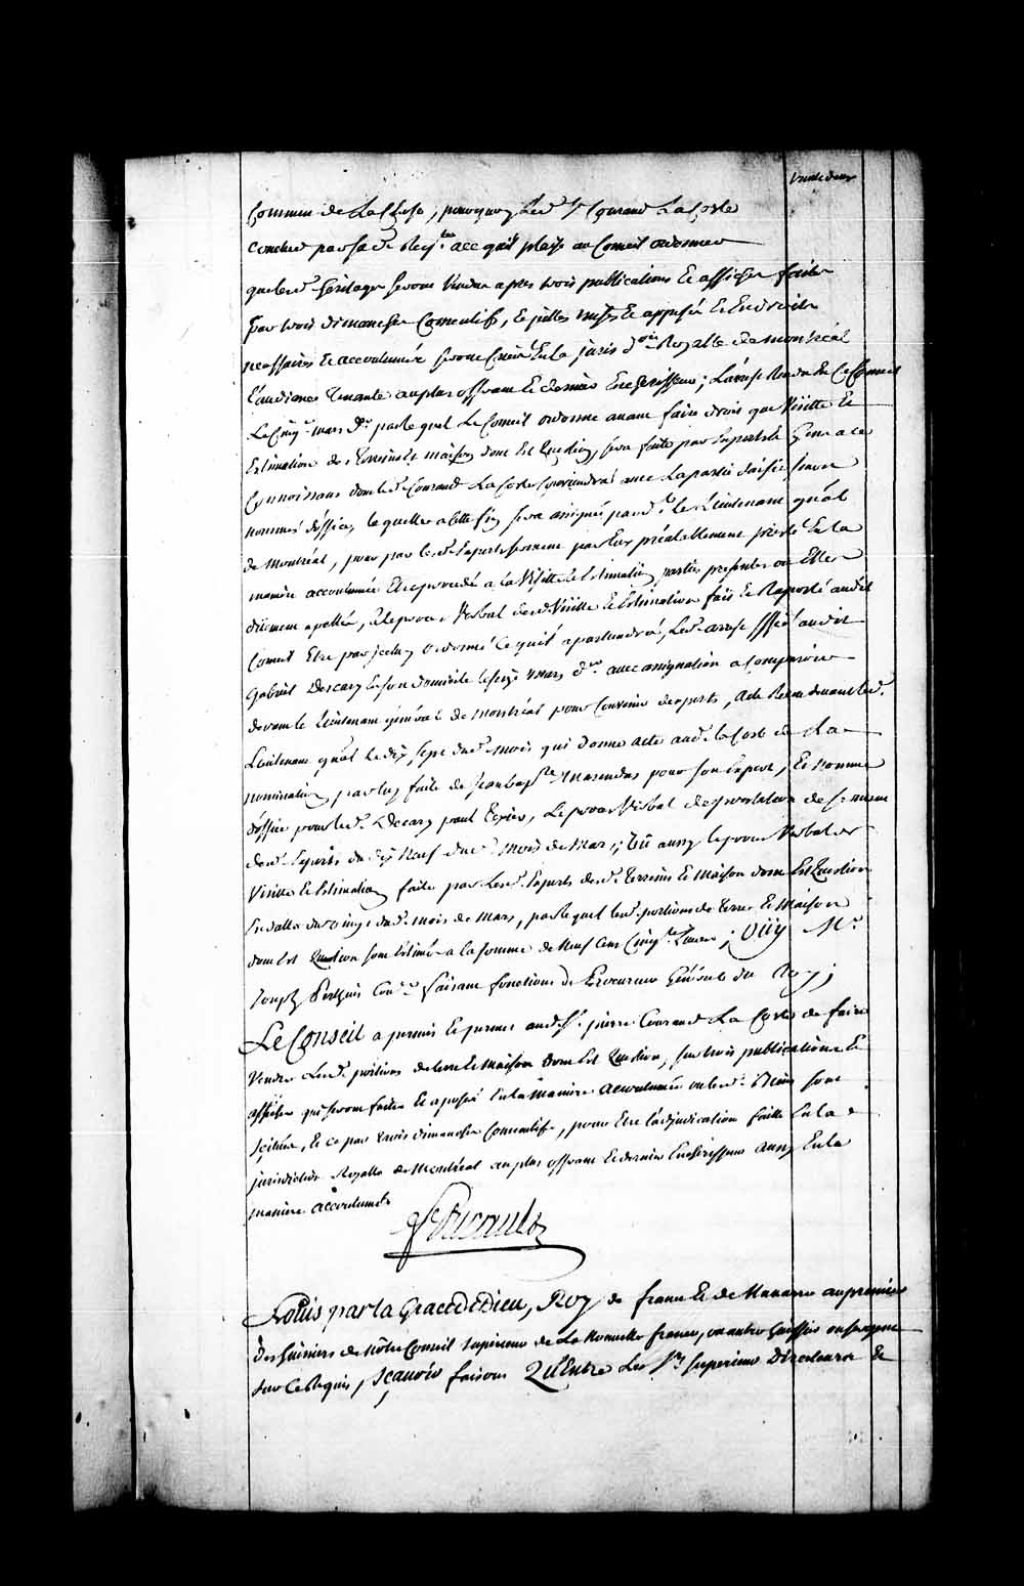 trente deux
Commun de La Chose, pourquoy Led. Sr Couraud La Coste
conclud par sad. Reqte. a ce quil plaise au Conseil ordonner
que lesd. heritages seront Vendus apres trois publications Et affiches faites
par trois dimanches Consecutifs, Et icelles mises Et apposées Es Endroits
necessaires Et accoutumées seront Criées En la jurisdon. Royalle de montréal
L'audiance tenante au plus offrant Et dernier Encherisseur; L'arrest Rendu En Ce Conseil
Le Cinqe. mars dr. par lequel Le Conseil ordonne avant faire droit que Visitte Et
Estimation des Terreins Et maison dont Est Question, sera faite par Experts Et Gens a ce
Connoissans dont led. Couraud La Coste Conviendra avec La partie saisie sinon
nommés d'office, laquelle a cette fin sera assignée pard. le Lieutenant gñal
de Montréal, pour par lesd. Experts serment par Eux préalablement presté En la
maniere accoutumée Etre procedé a la Visitte Et Estimation, parties presentes ou Elles
düement apellées, Et le procez Verbal de lad. Visitte Et Estimation fait Et Raporté aud.
Conseil Etre par jceluy Ordonné Ce quil apartiendra, Led. arrest signifié audit
Gabriel Descary En son domicile le seize mars dr. avec assignation a Comparoir
devant le Lieutenant général de Montréal pour Convenir dexperts, Acte Rendu devant led.
Lieutenant gñal le dix sept dud. mois qui donne acte aud. la Coste de La
nomination par luy faite de Jean bapte. pour son Expert, Et nomme
d'office pour led. Decary paul texier, Le procez Verbal de prestation de serment
desd. Experts du dix Neuf dud. mois de Mars; Vû aussy le procez Verbal de
Visitte Et Estimation faite par Lesd. Experts desd. Terreins Et Maison dont Est Question
En datte du vingt dud. mois de Mars, par lequel lesd. portions de Terre Et Maison
dont Est Question sont Estimées a la somme de Neuf Cens Cinqte. Livres; Oüy Me.
Joseph Perthuis Coner. faisant fonctions de Procureur Général du Roy;
Le Conseil a permis Et permet aud. Sr. pierre Couraud La Coste de faire
Vendre Lesd. portions de terre Et Maison dont Est Question, sur trois publications Et
affiches qui seront faites Et aposées En la maniere accoutumée ou lesd. Biens sont
scitués, Et ce par trois dimanches Consecutifs, pour Etre l'adjudication faitte En la
jurisdiction Royalle de Montréal au plus offrant Et dernier Encherisseur aussy En la
maniere accoutumée
Louis par la Grace de Dieu, Roy de france Et de Navarre au premier
des huissiers de nôtre Conseil superieur de La Nouvelle france, ou autre huissier
sur Ce Requis, sçavoir faisons Qu'Entre Les Srs. superieur Directeurs Et